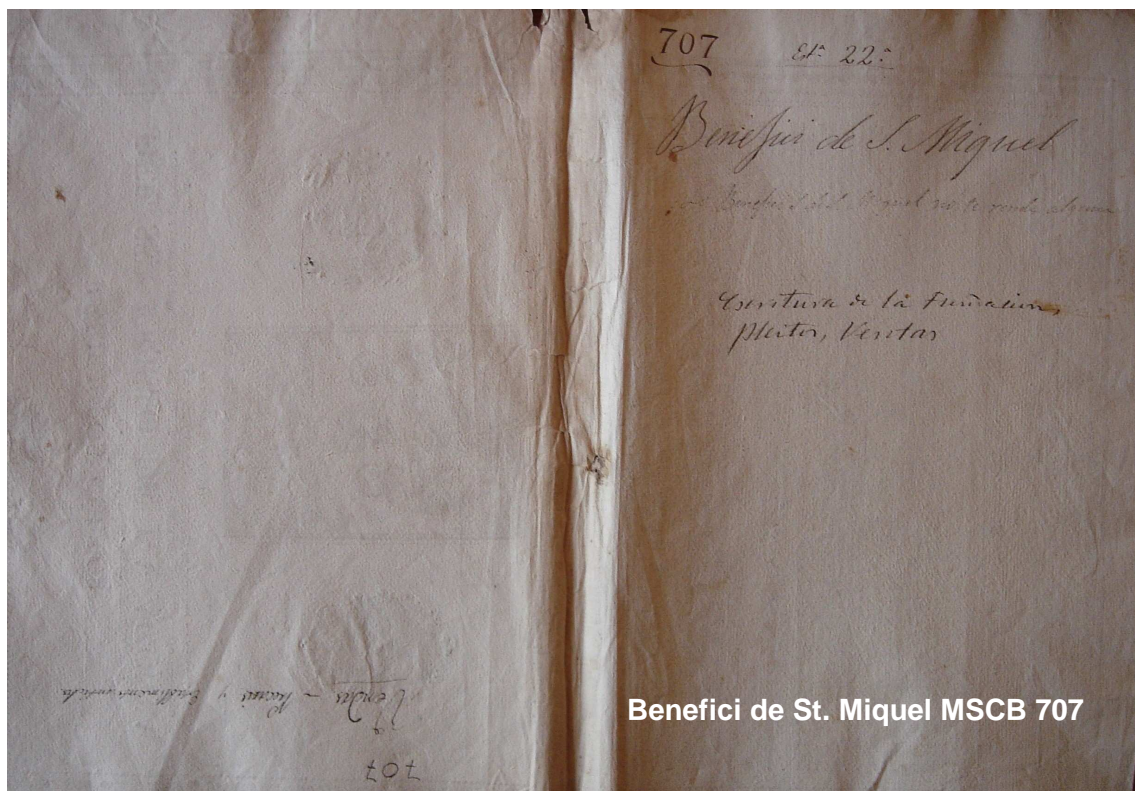 707
Est.ª 22.ª
Benefici de S. Miquel
Benefici de S. Miquel no te renda alguna
Escritura de la Fundacion,
pleitos, Ventas
Vendas
707
Benefici de St. Miquel MSCB 707